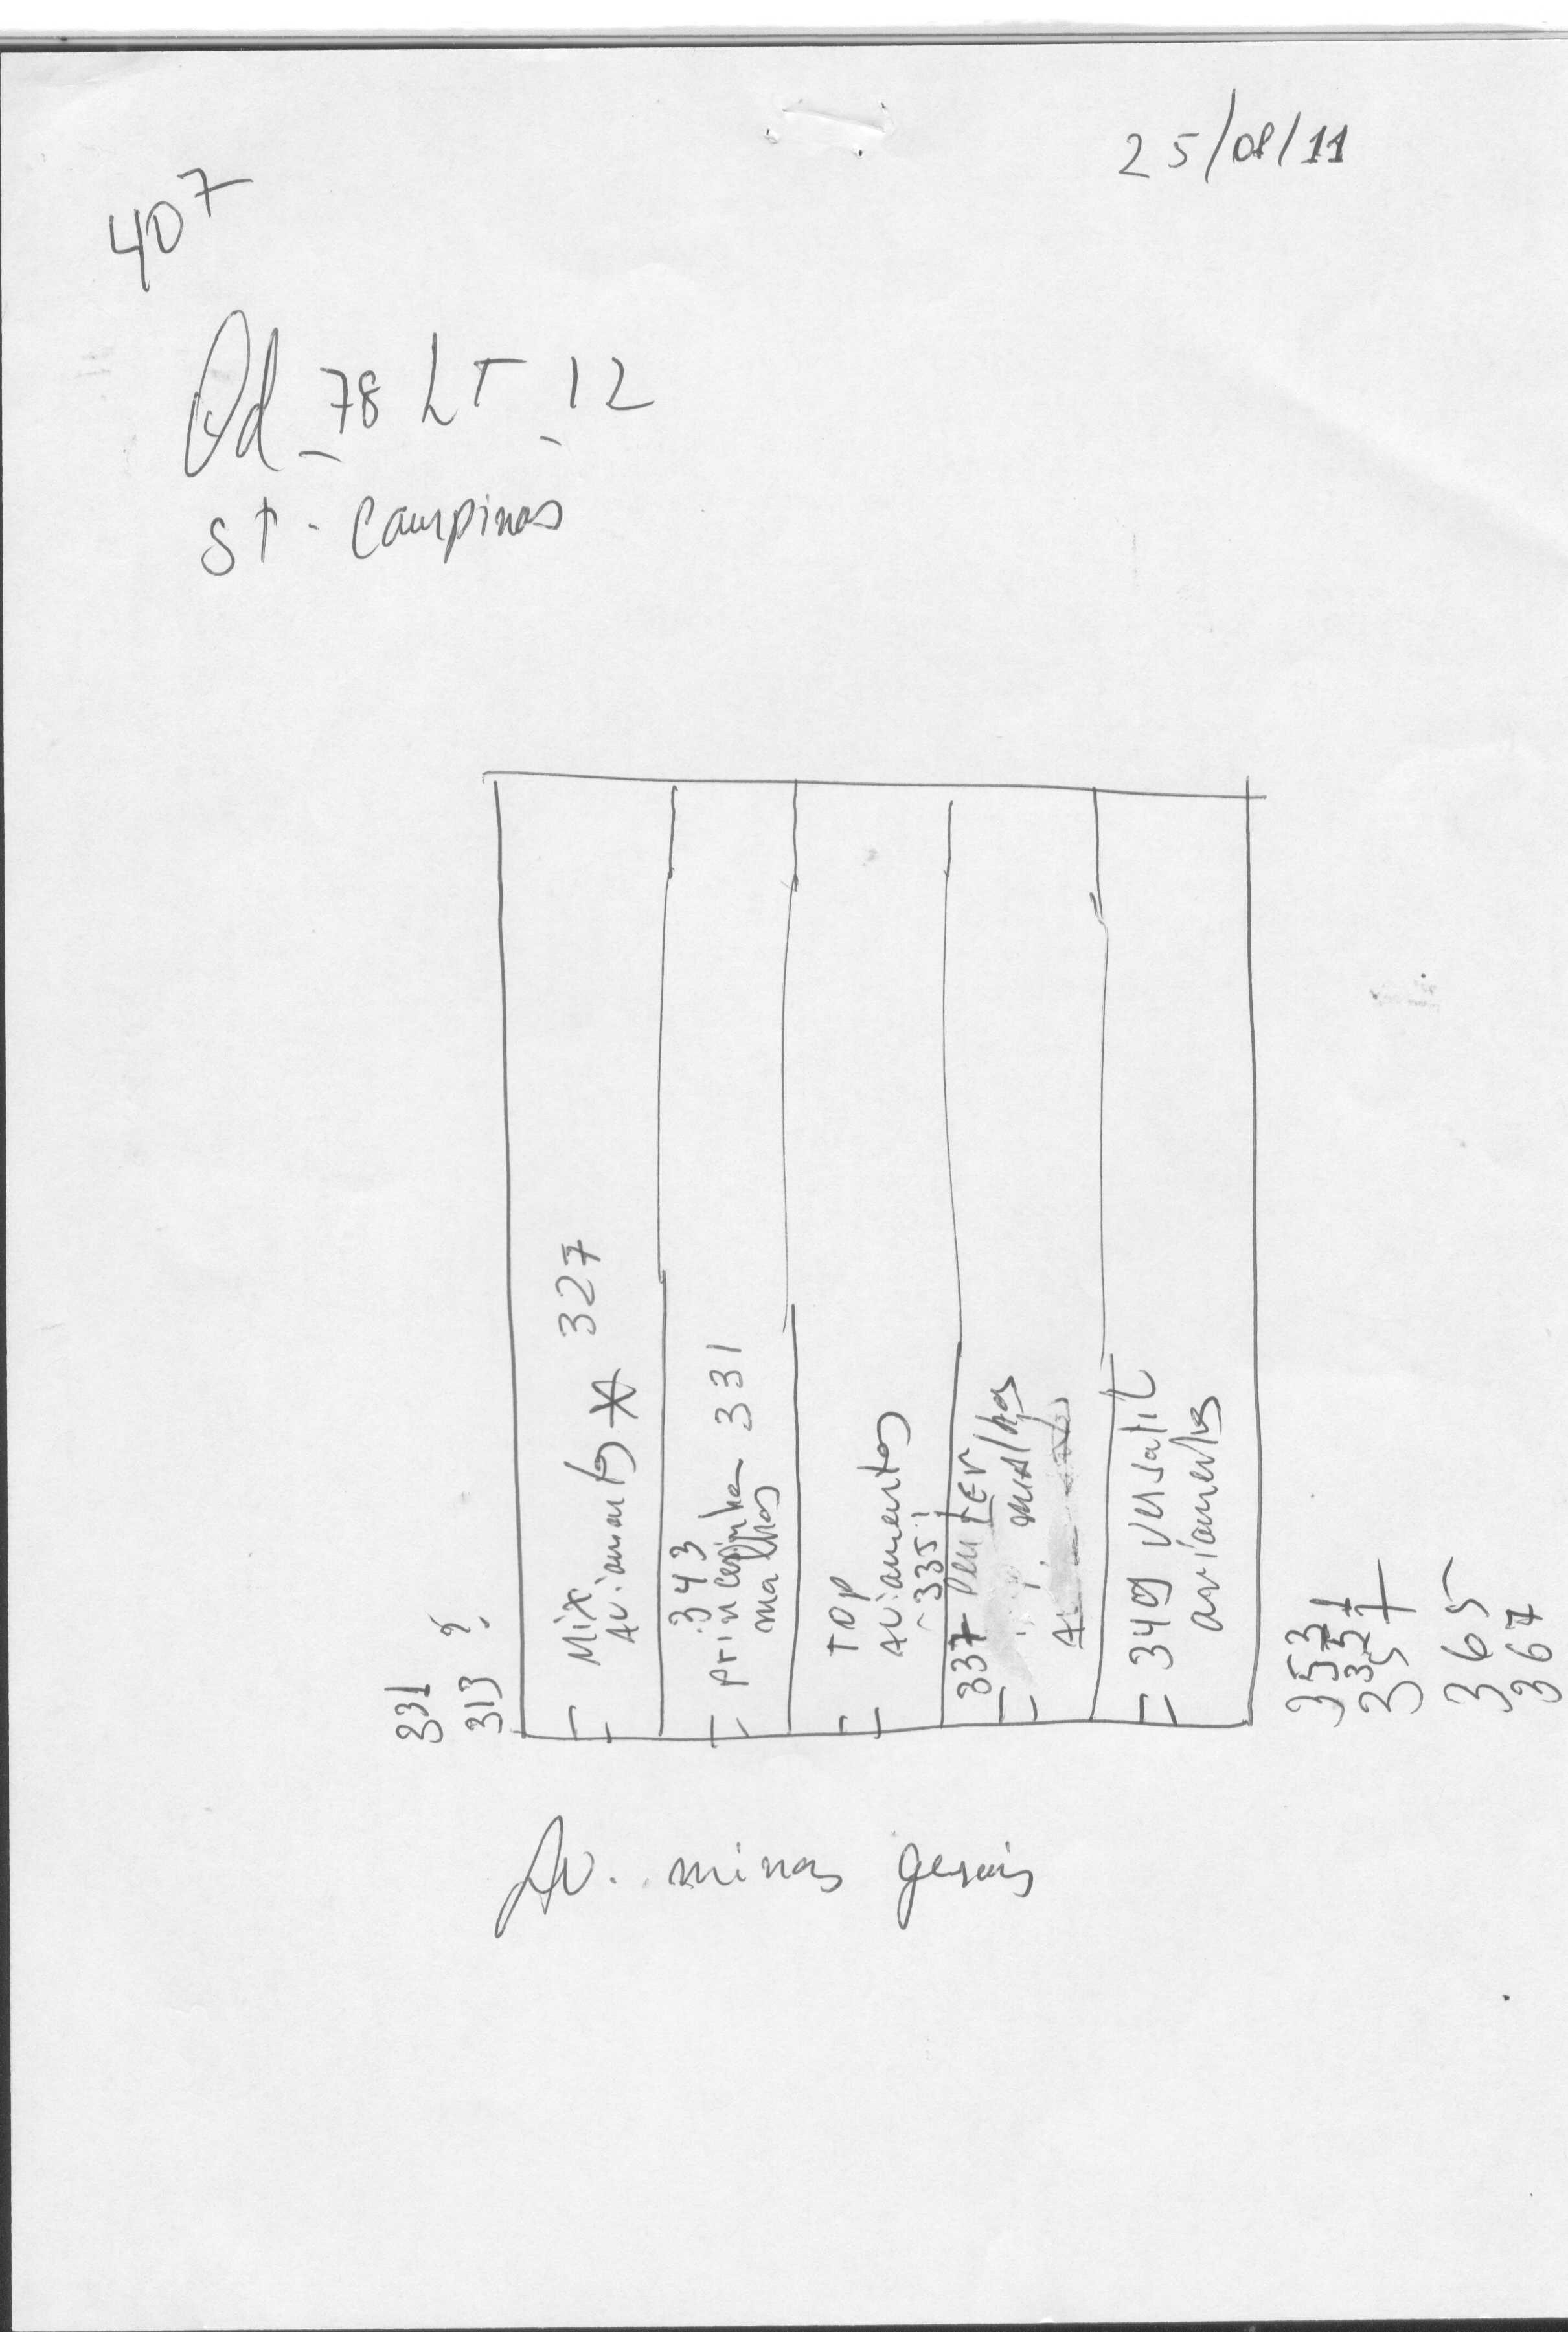 25/08/11
407
Qd_78 LT_12
ST - Campinas
331
313 ?
Mix 327
Aviamentos *
343
princesinha 331
malhas
TOP
Aviamentos
335
337
malhas
349 Versatil
aviamentos
353
357
365
367
Av. minas gerais